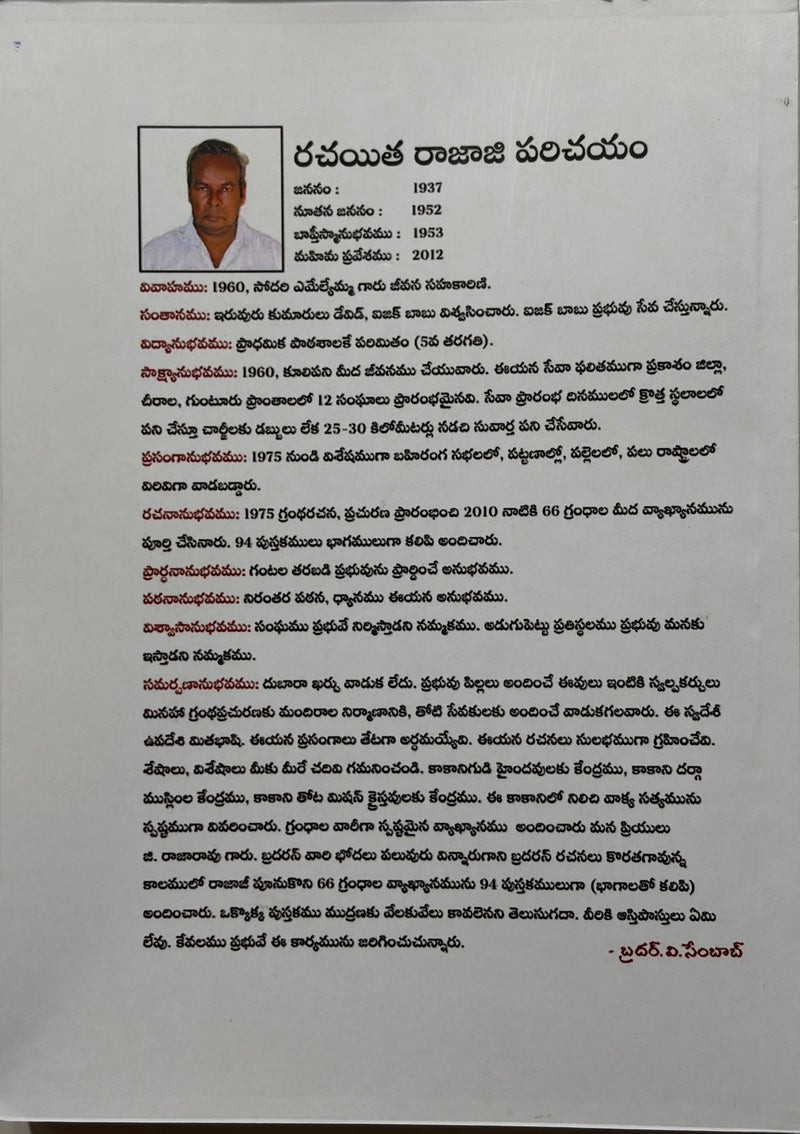 రచయిత రాజాజి పరిచయం
జననం : 1937
నూతన జననం : 1952
బాప్తీస్మానుభవము : 1953
మహిమ ప్రవేశము : 2012
వివాహము: 1960, సోదరి ఎమేల్యేమ్మ గారు జీవన సహకారిణి.
సంతానము: ఇరువురు కుమారులు డేవిడ్, ఐజక్ బాబు విశ్వసించారు. ఐజక్ బాబు ప్రభువు సేవ చేస్తున్నారు.
విద్యానుభవము: ప్రాధమిక పాఠశాలకే పరిమితం (5వ తరగతి).
సాక్ష్యానుభవము: 1960, కూలిపని మీద జీవనము చేయువారు. ఈయన సేవా ఫలితముగా ప్రకాశం జిల్లా,
చీరాల, గుంటూరు ప్రాంతాలలో 12 సంఘాలు ప్రారంభమైనవి. సేవా ప్రారంభ దినములలో క్రొత్త స్థలాలలో
పని చేస్తూ చార్జీలకు డబ్బులు లేక 25-30 కిలోమీటర్లు నడచి సువార్త పని చేసేవారు.
ప్రసంగానుభవము: 1975 నుండి విశేషముగా బహిరంగ సభలలో, పట్టణాల్లో, పల్లెలలో, పలు రాష్ట్రాలలో
విరివిగా వాడబడ్డారు.
రచనానుభవము: 1975 గ్రంథరచన, ప్రచురణ ప్రారంభించి 2010 నాటికి 66 గ్రంధాల మీద వ్యాఖ్యానమును
పూర్తి చేసినారు. 94 పుస్తకములు భాగములుగా కలిపి అందించారు.
ప్రార్థనానుభవము: గంటల తరబడి ప్రభువును ప్రార్దించే అనుభవము.
పఠనానుభవము: నిరంతర పఠన, ధ్యానము ఈయన అనుభవము.
విశ్వాసానుభవము: సంఘము ప్రభువే నిర్మిస్తాడని నమ్మకము. అడుగుపెట్టు ప్రతిస్థలము ప్రభువు మనకు
ఇస్తాడని నమ్మకము.
సమర్పణానుభవము: దుబారా ఖర్చు వాడుక లేదు. ప్రభువు పిల్లలు అందించే ఈవులు ఇంటికి స్వల్పకర్చులు
మినహా గ్రంథప్రచురణకు మందిరాల నిర్మాణానికి, తోటి సేవకులకు అందించే వాడుకగలవారు. ఈ స్వదేశీ
ఉపదేశి మితభాషి. ఈయన ప్రసంగాలు తేటగా అర్ధమయ్యేవి. ఈయన రచనలు సులభముగా గ్రహించేవి.
శేషాలు, విశేషాలు మీకు మీరే చదివి గమనించండి. కాకానిగుడి హైందవులకు కేంద్రము, కాకాని దర్గా
ముస్లింల కేంద్రము, కాకాని తోట మిషన్ క్రైస్తవులకు కేంద్రము. ఈ కాకానిలో నిలిచి వాక్య సత్యమును
స్పష్టముగా వివరించారు. గ్రంధాల వారీగా స్పష్టమైన వ్యాఖ్యానము అందించారు మన ప్రియులు
జి. రాజారావు గారు. బ్రదరన్ వారి భోదలు పలువురు విన్నారుగాని బ్రదరన్ రచనలు కొరతగావున్న
కాలములో రాజాజీ పూనుకొని 66 గ్రంధాల వ్యాఖ్యానమును 94 పుస్తకములుగా (భాగాలతో కలిపి)
అందించారు. ఒక్కొక్క పుస్తకము ముద్రణకు వేలకువేలు కావలెనని తెలుసుగదా. వీరికి ఆస్తిపాస్తులు ఏమి
లేవు. కేవలము ప్రభువే ఈ కార్యమును జరిగించుచున్నారు.
- బ్రదర్.వి.సేంబాబ్